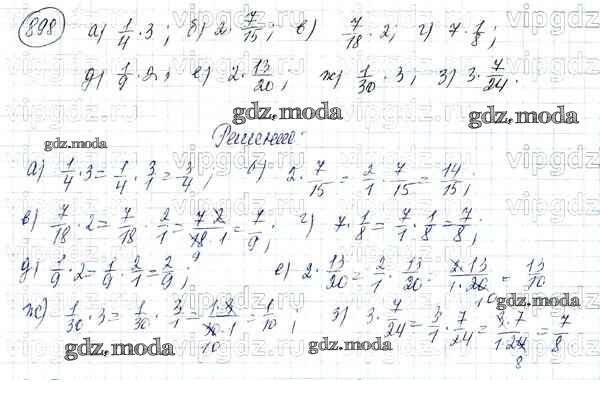 898 а) 1/4 · 3; б) 2 · 7/15; в) 7/18 · 2; г) 7 · 1/8;
д) 1/9 · 2; е) 2 · 13/20; ж) 1/30 · 3; з) 3 · 7/24.
gdz.moda gdz.moda
Решение:
gdz.moda
а) 1/4 · 3 = 1/4 · 3/1 = 3/4; б) 2 · 7/15 = 2/1 · 7/15 = 14/15;
в) 7/18 · 2 = 7/18 · 2/1 = 7·2/18·1 = 7/9; г) 7 · 1/8 = 7/1 · 1/8 = 7/8;
9
д) 1/9 · 2 = 1/9 · 2/1 = 2/9; е) 2 · 13/20 = 2/1 · 13/20 = 2·13/1·20 = 13/10
gdz.moda
ж) 1/30 · 3 = 1/30 · 3/1 = 1·3/30·1 = 1/10; з) 3 · 7/24 = 3/1 · 7/24 = 3·7/1·24 = 7/8
10 8
gdz.moda gdz.moda
vipgdz.ru